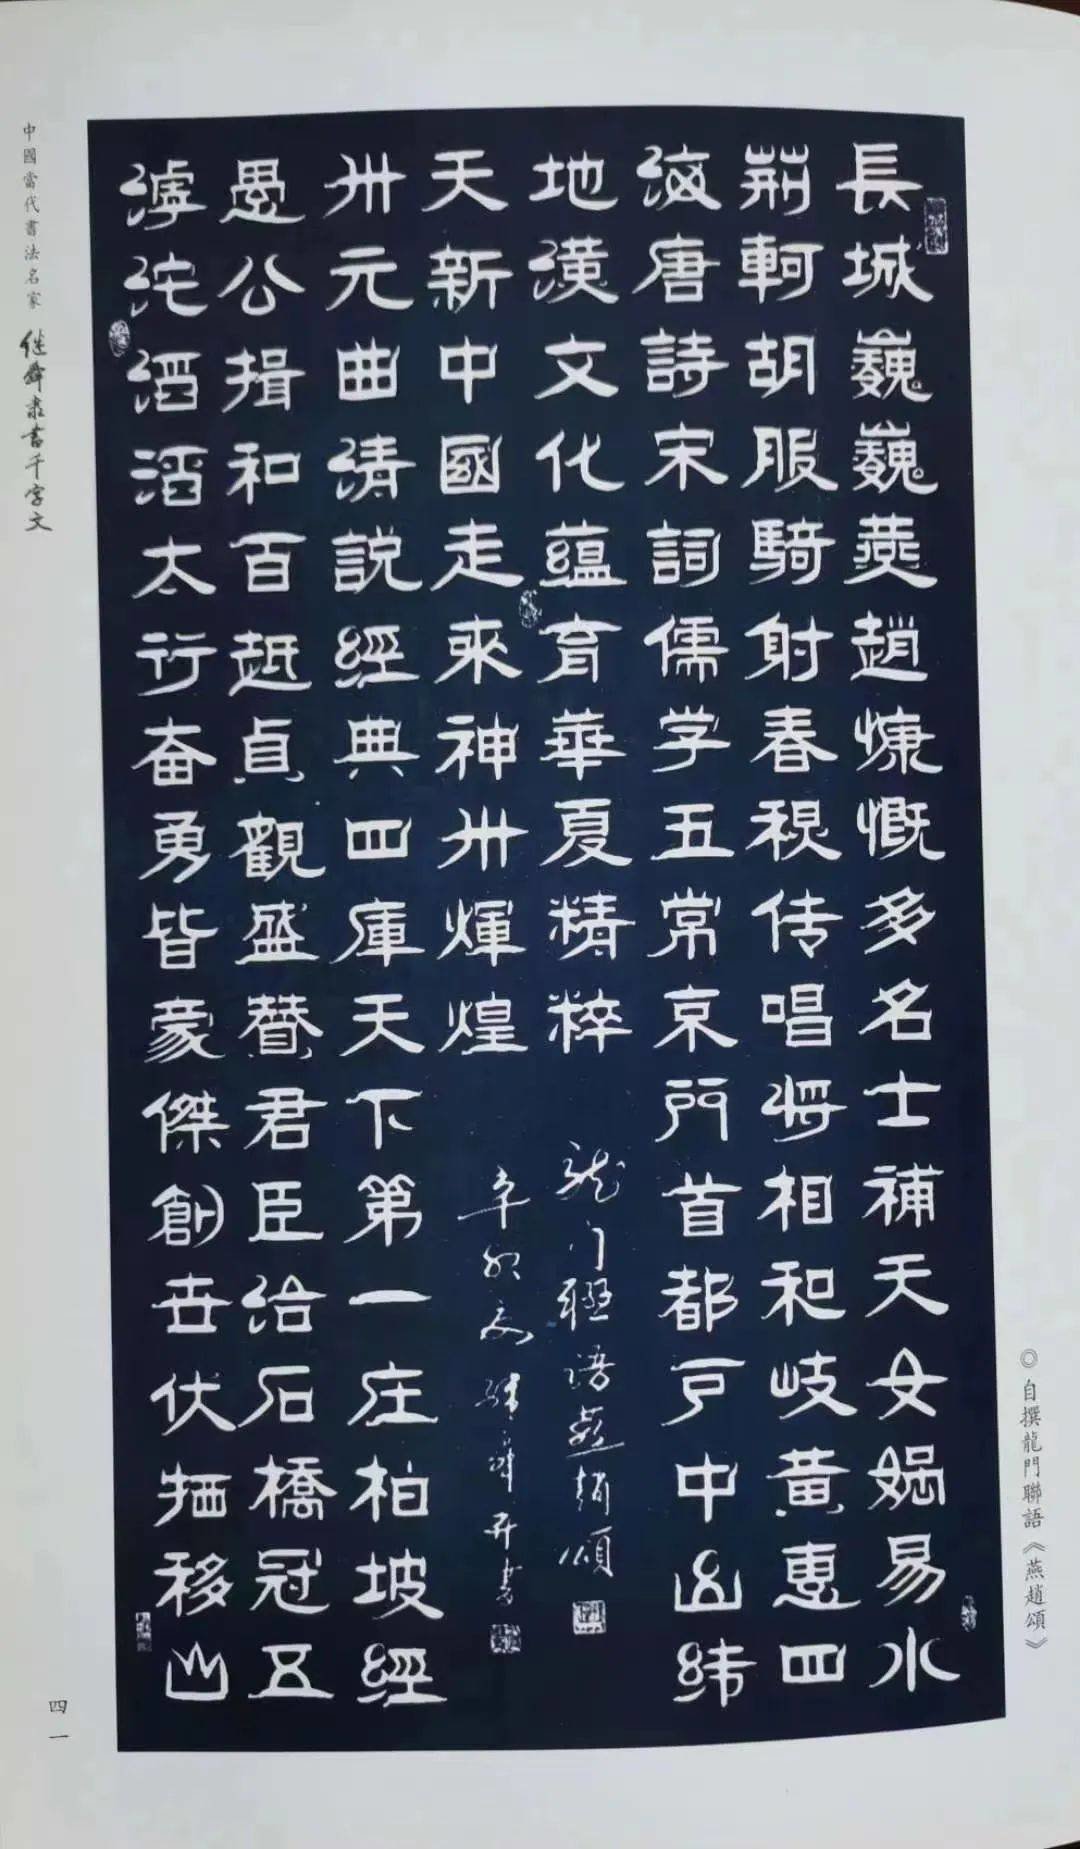 長城巍巍燕趙慷慨多名士補天女媧易水
荊軻胡服騎射春秋传唱将相和岐黄惠四
海唐詩宋詞儒学五常京門首都戶中山緯
地潢文化蕴育華夏精粹
龙门联語燕趙頌
滹沱洒洒太行奋勇皆豪傑創世伏牺移山
愚公揖和百越貞觀盛贊君臣治石橋冠五
州元曲清説經典四庫天下第一庄柏坡經
天新中國走來神州輝煌
辛卯夏继舜并書
◎自撰龍門聯語《燕趙頌》
中國當代書法名家 继舜隶書千字文
四一